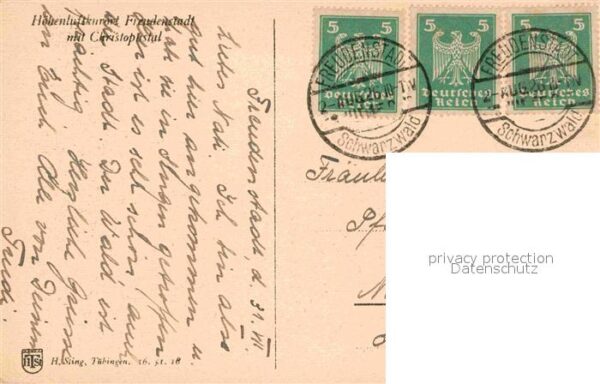 Höhenluftkurort Freudenstadt
mit Christophstal
Freudenstadt, d. 31. VII.
Liebes Nati. Ich bin also
gut hier angekommen u.
habe sie in Horgen getroffen
Hier ist es sehr schön, auch
die Stadt. Der Wald ist
prächtig. Herzliche Grüsse
an Euch Alle von Deinem
Trudi.
H. Sting, Tübingen. 26. 51. 18
5 5
Deutsches
Reich
5 5
Deutsches
Reich
5 5
Deutsches
Reich
FREUDENSTADT
2-AUG.26.10-11V
Schwarzwald
FREUDENSTADT
2-AUG.26.10-11V
Schwarzwald
Fräulein
Pf
privacy protection
Datenschutz